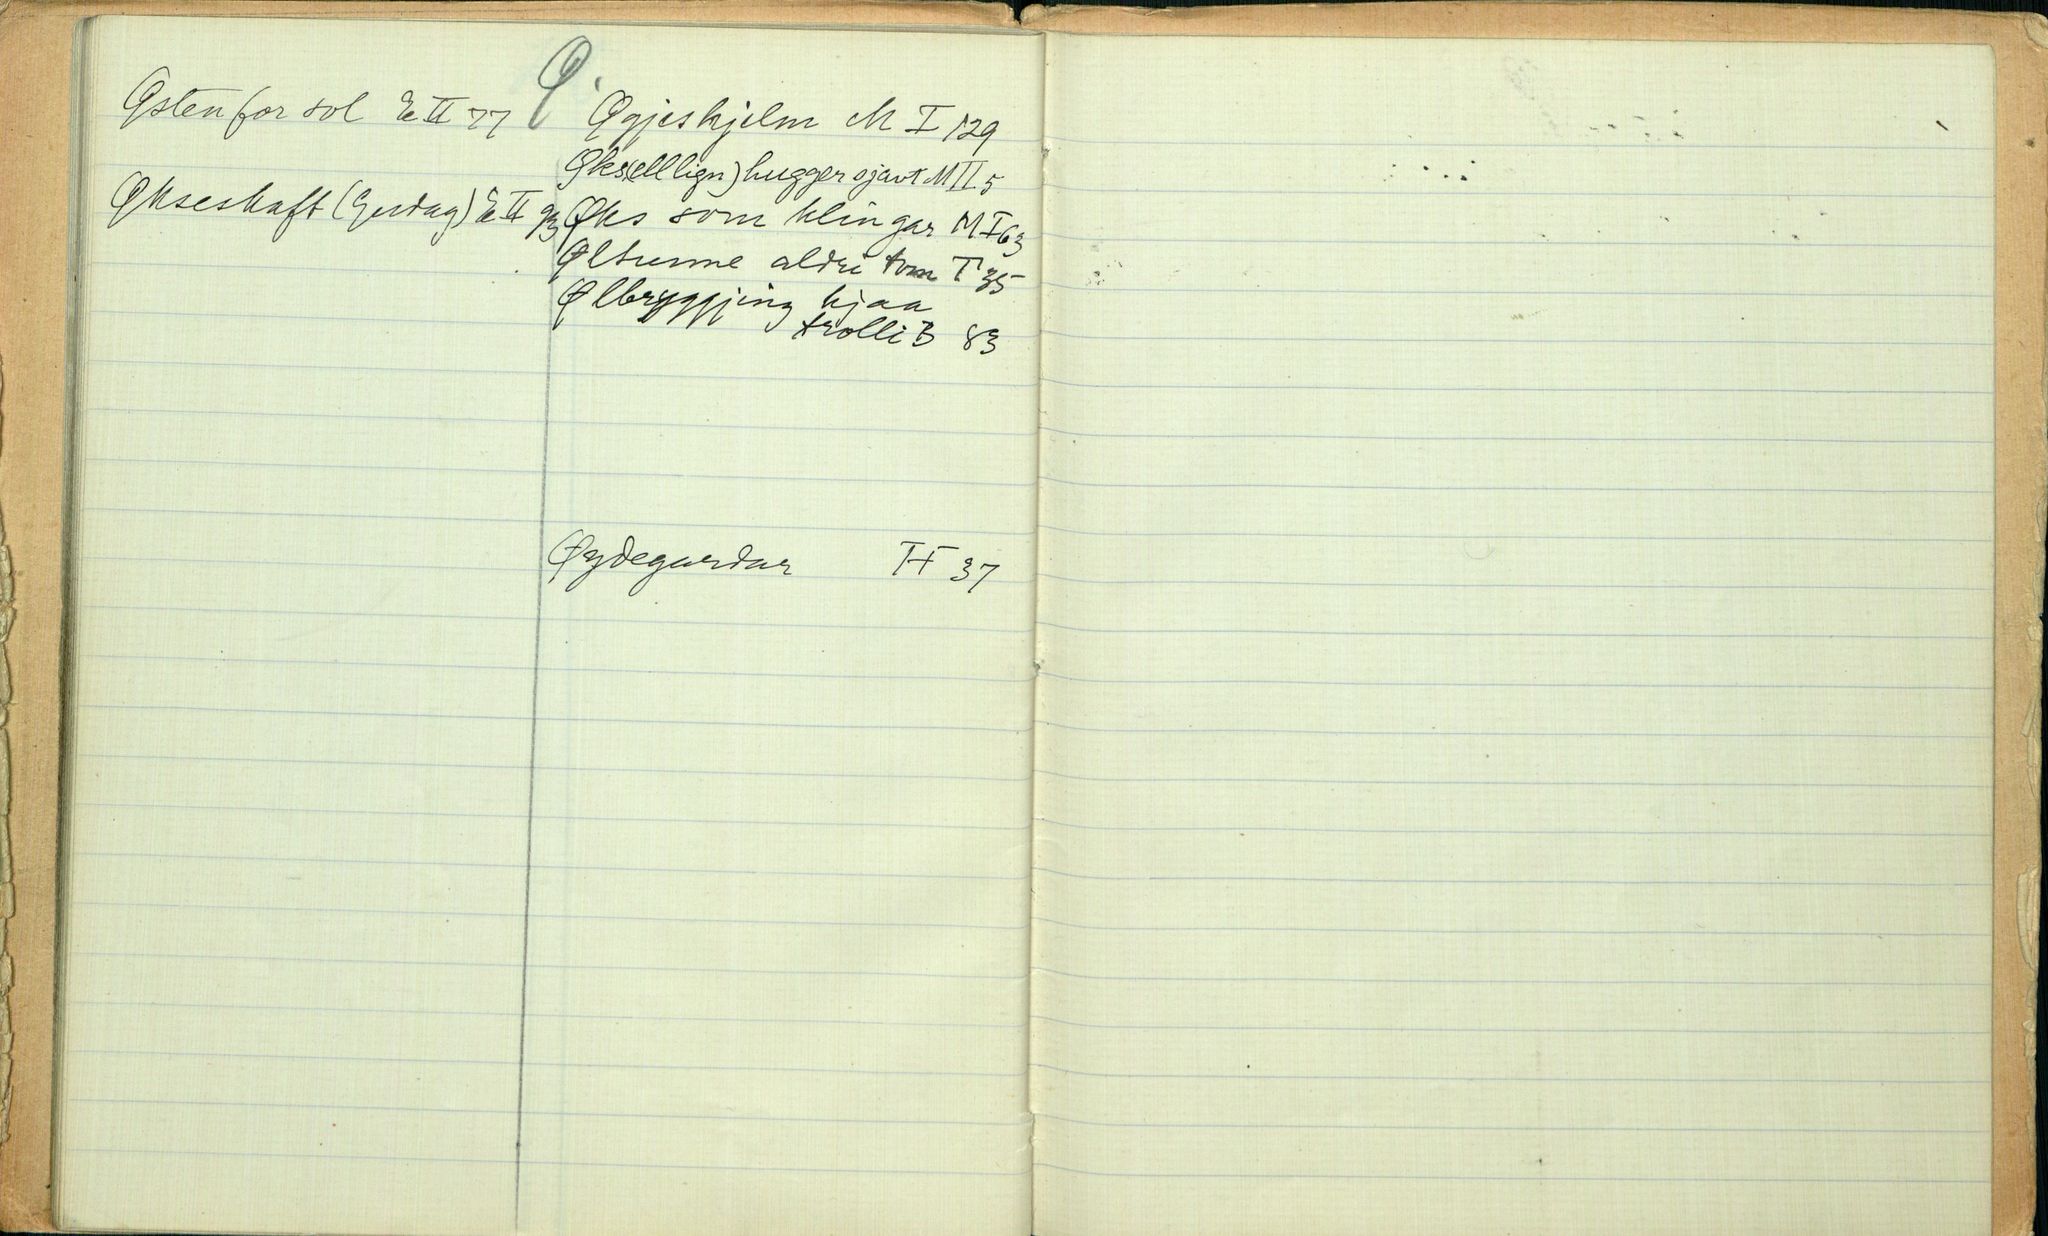 Ø.
Østenfor sol E II 77
Økseskaft (Goddag) E II 93
Øgjeshjelm M I 129
Øks(ell lign) hugger sjavt M II 5
Øks som klingar M I 63
Øltunne aldri tom T 35
Ølbryggjing hjaa
trolli B 83
Øydegardar H 37